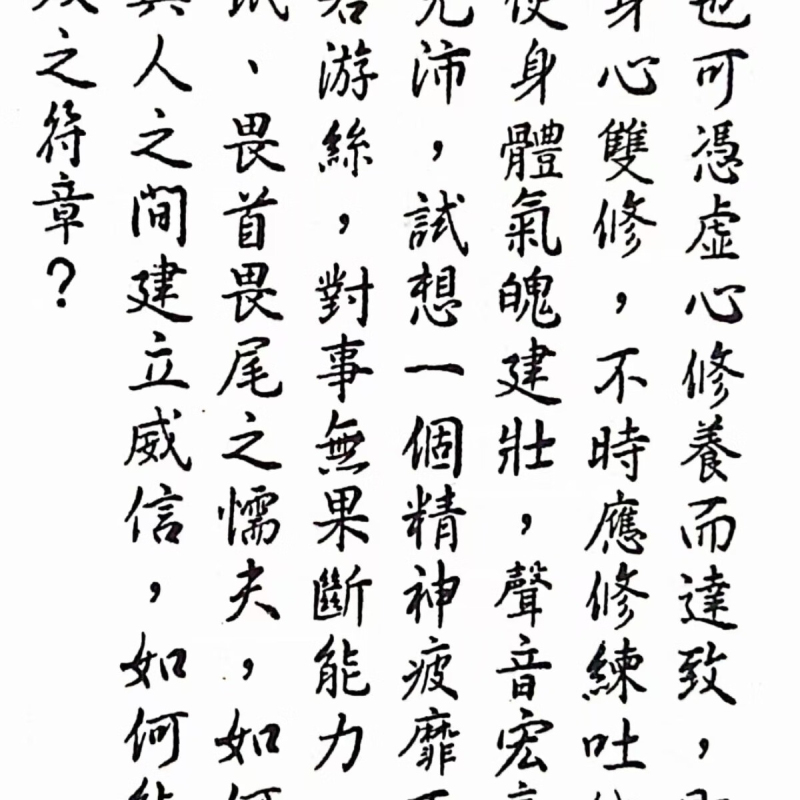 也可憑虛心修養而達致，
身心雙修，不時應修練吐
使身體氣魄建壯，聲音宏
充沛，試想一個精神疲靡
若游絲，對事無果斷能力
、畏首畏尾之懦夫，如何
人之間建立威信，如何能
之符章？